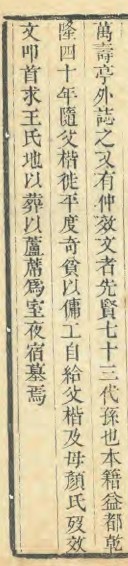 萬壽亭外誌之又有仲效文者先賢七十三代孫也本籍益都乾
隆四十年隨父楷徙平度奇貧以傭工自給父楷及母顏氏歿效
文叩首求王氏地以葬以蘆蓆爲室夜宿墓焉